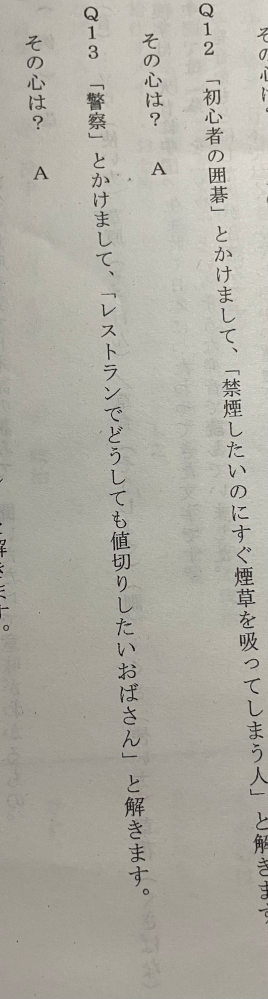 その心は?
Q12 「初心者の囲碁」とかけまして、「禁煙したいのにすぐ煙草を吸ってしまう人」と解きます
その心は? A
Q13 「警察」とかけまして、「レストランでどうしても値切りしたいおばさん」と解きます。
その心は? A
と解きます。